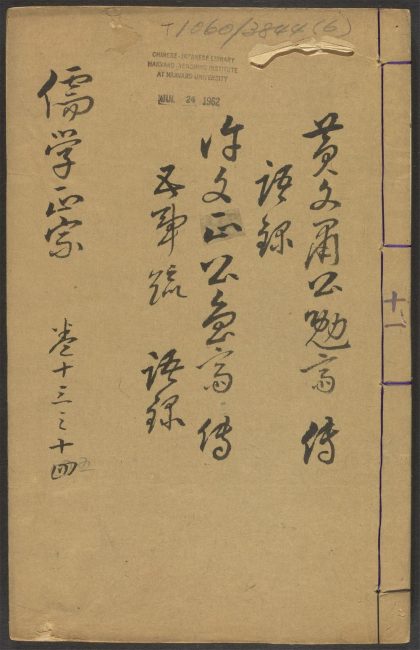 T1060/3844(6)
CHINESE-JAPANESE LIBRARY
HARVARD-YENCHING INSTITUTE
AT HARVARD UNIVERSITY
24 1962
十一
黄文肅公勉齋 傳
語録
許文正公魯齋 傳
五事疏 語録
儒学正宗
卷十三之十四
五